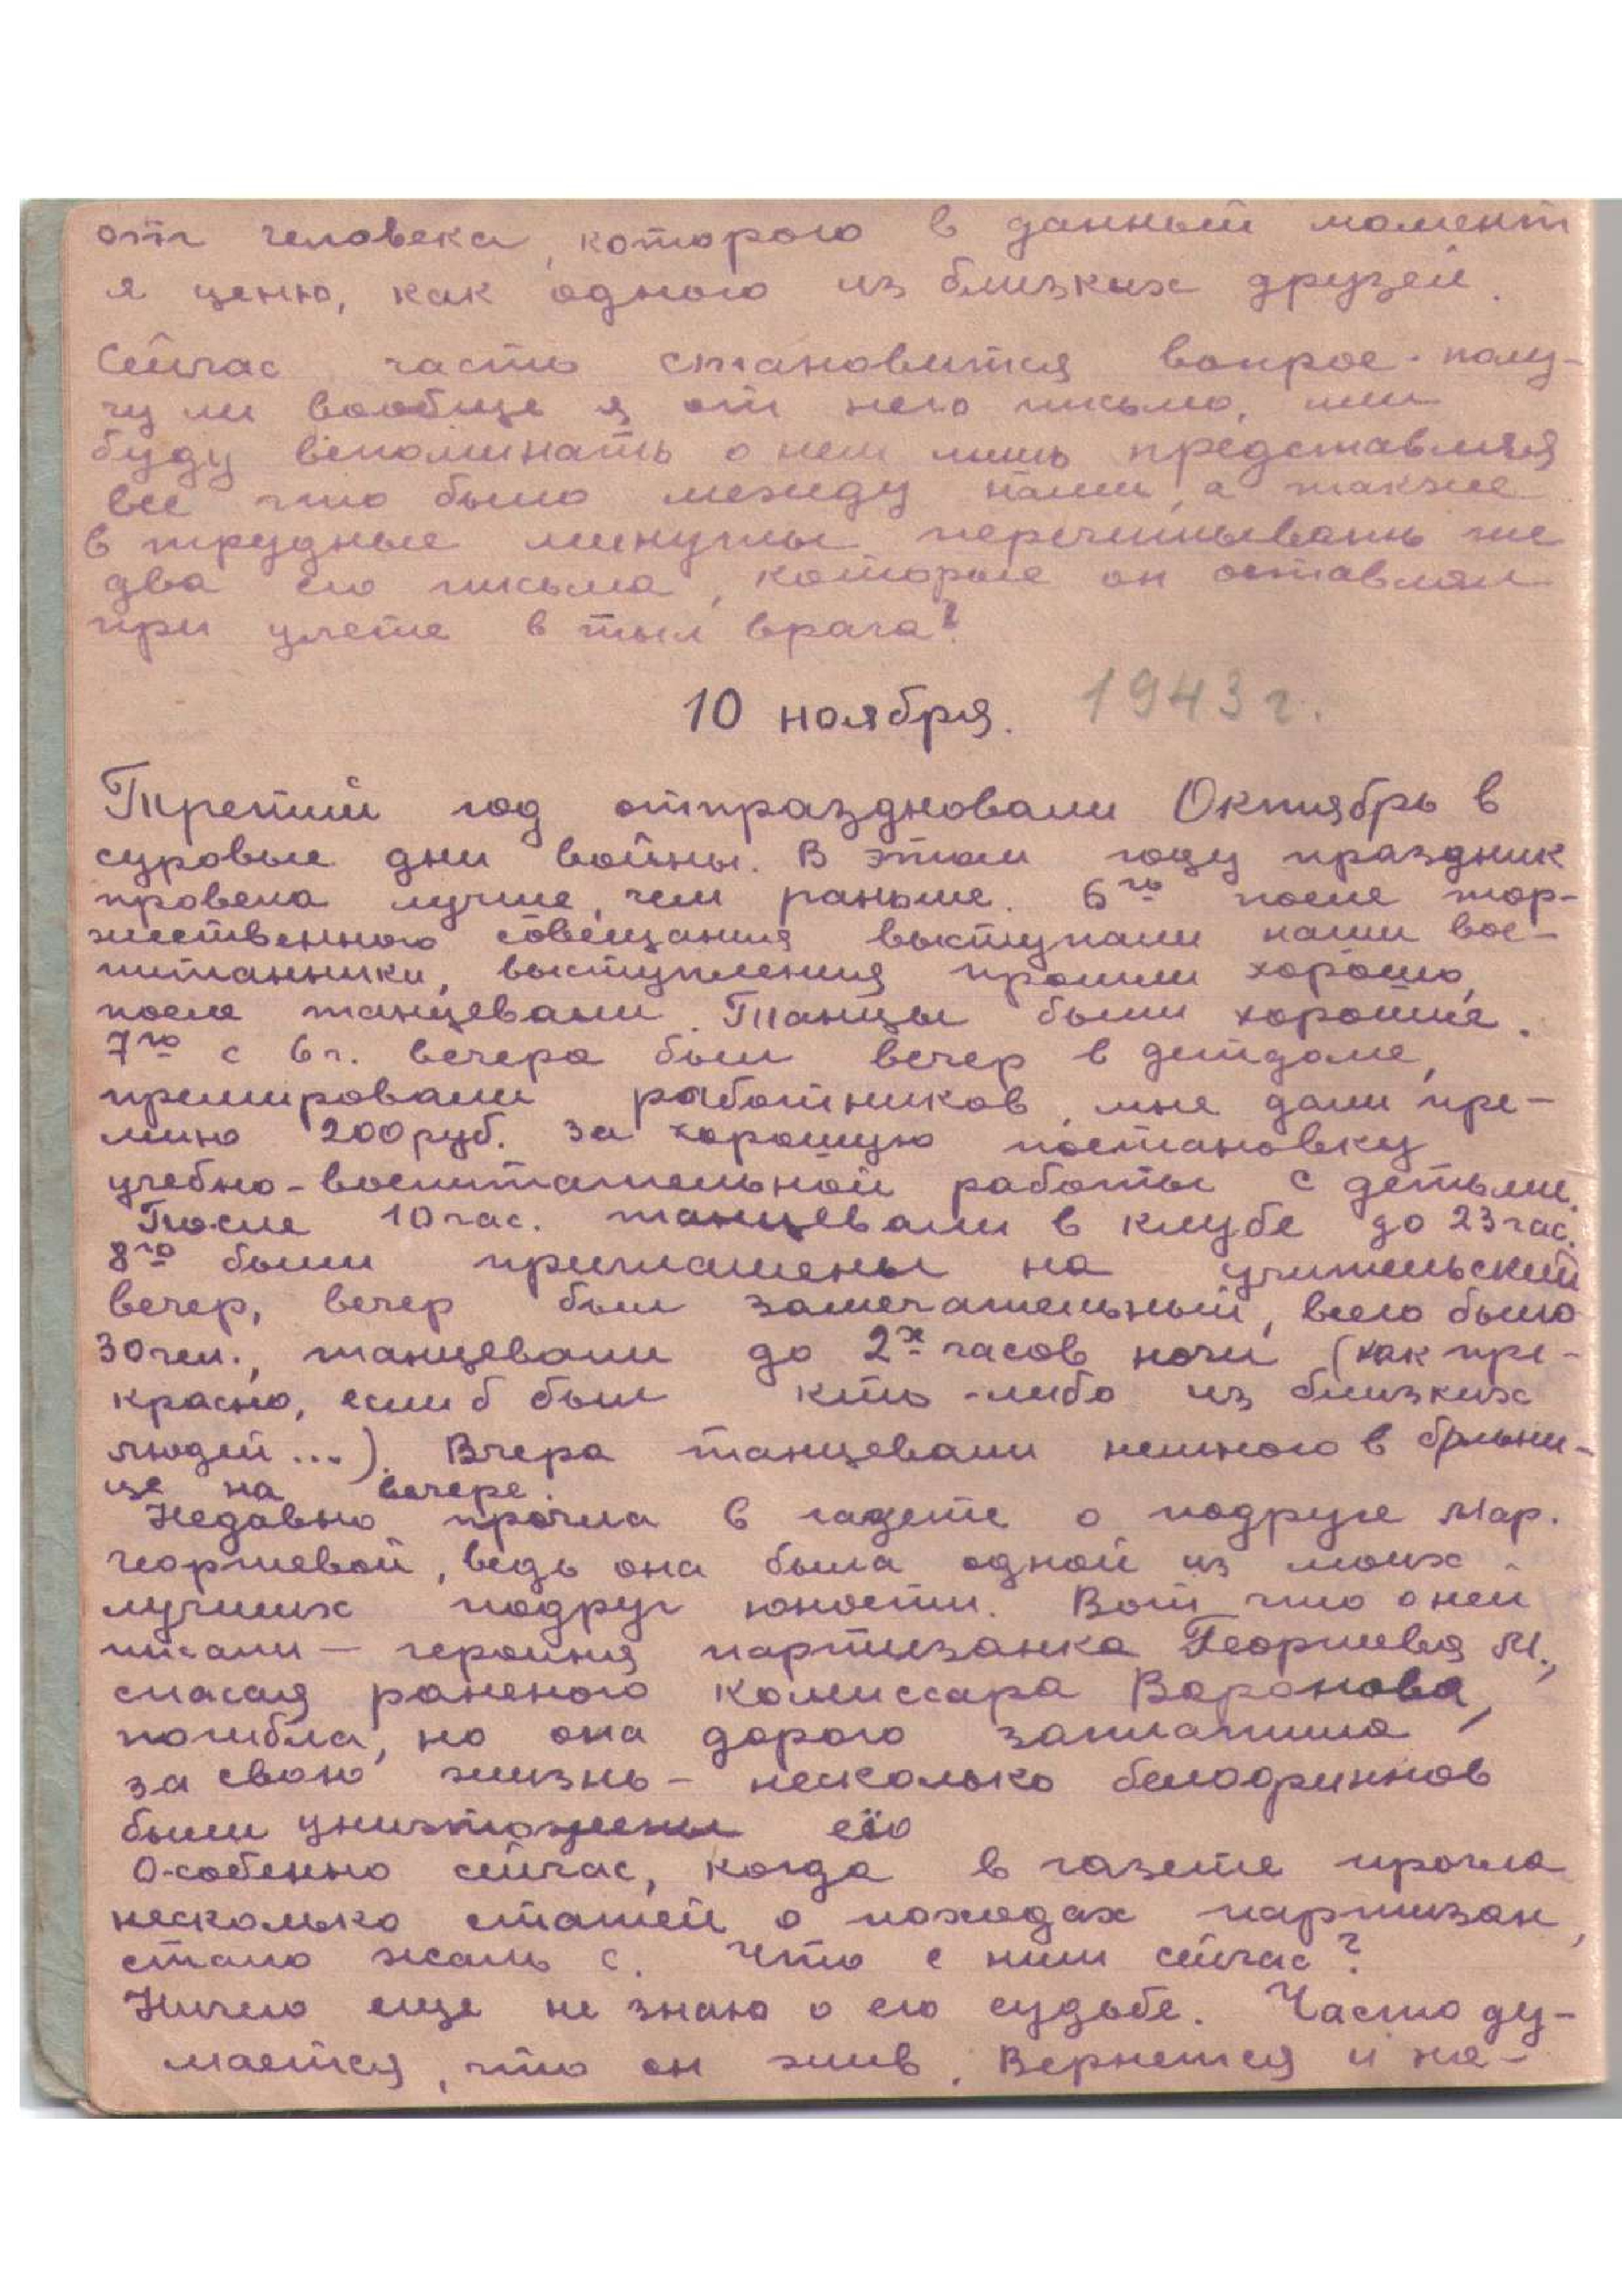 от человека, которого в данный момент
я ценю, как одного из близких друзей.
Сейчас часто становится вопрос - полу-
чу ли вообще я от него письмо, или
буду вспоминать о нем лишь представляя
все что было между нами, а также
в трудные минуты перечитывать те
два его письма, которые он оставлял
при улете в тыл врага?
10 ноября. 1943 г.
Третий год отпраздновали Октябрь в
суровые дни войны. В этом году праздник
провела лучше, чем раньше. 6го после тор-
жественного совещания выступали наши вос-
питанники, выступления прошли хорошо,
после танцевали. Танцы были хорошие.
7го с 6 ч. вечера был вечер в детдоме,
премировали работников, мне дали пре-
мию 200 руб. за хорошую постановку
учебно-воспитательной работы с детьми.
После 10 час. танцевали в клубе до 23 час.
8го были приглашены на учительский
вечер, вечер был замечательный, всего было
30 чел., танцевали до 2х часов ночи (как пре-
красно, если б был кто-либо из близких
людей...). Вчера танцевали немного в больни-
це на вечере.
Недавно прочла в газете о подруге Мар.
Георгиевой, ведь она была одной из моих
лучших подруг юности. Вот что о ней
писали — героиня партизанка Георгиева М.,
спасая раненого комиссара Воронова,
погибла, но она дорого заплатила
за свою жизнь - несколько белофиннов
были уничтожены ею
Особенно сейчас, когда в газете прочла
несколько статей о походах партизан,
стало жаль С. Что с ним сейчас?
Ничего еще не знаю о его судьбе. Часто ду-
мается, что он жив. Вернется и на-